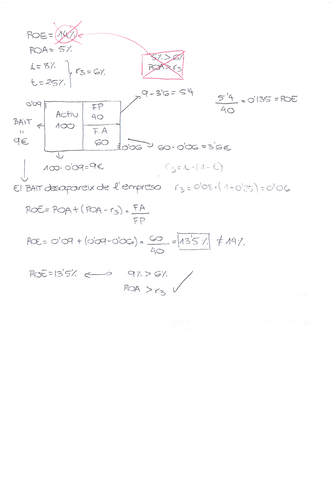 ROE = 14%
ROA = 5%
i = 8%
t = 25%
r3 = 6%
5% > 6%
ROA > r3
0'09
BAIT
"
9€
Actiu
100
FP
40
F.A
60
9 - 3'6 = 5'4
5'4
40
= 0'135 = ROE
0'06
60 · 0'06 = 3'6€
100 · 0'09 = 9€
r3 = i · (1 - t)
El BAIT desapareix de l'empresa
r3 = 0'08 · (1 - 0'25) = 0'06
ROE = ROA + (ROA - r3) · FA
FP
ROE = 0'09 + (0'09 - 0'06) · 60
40
= 13'5% ≠ 14%
ROE = 13'5% ↔ 9% > 6%
ROA > r3 ✓